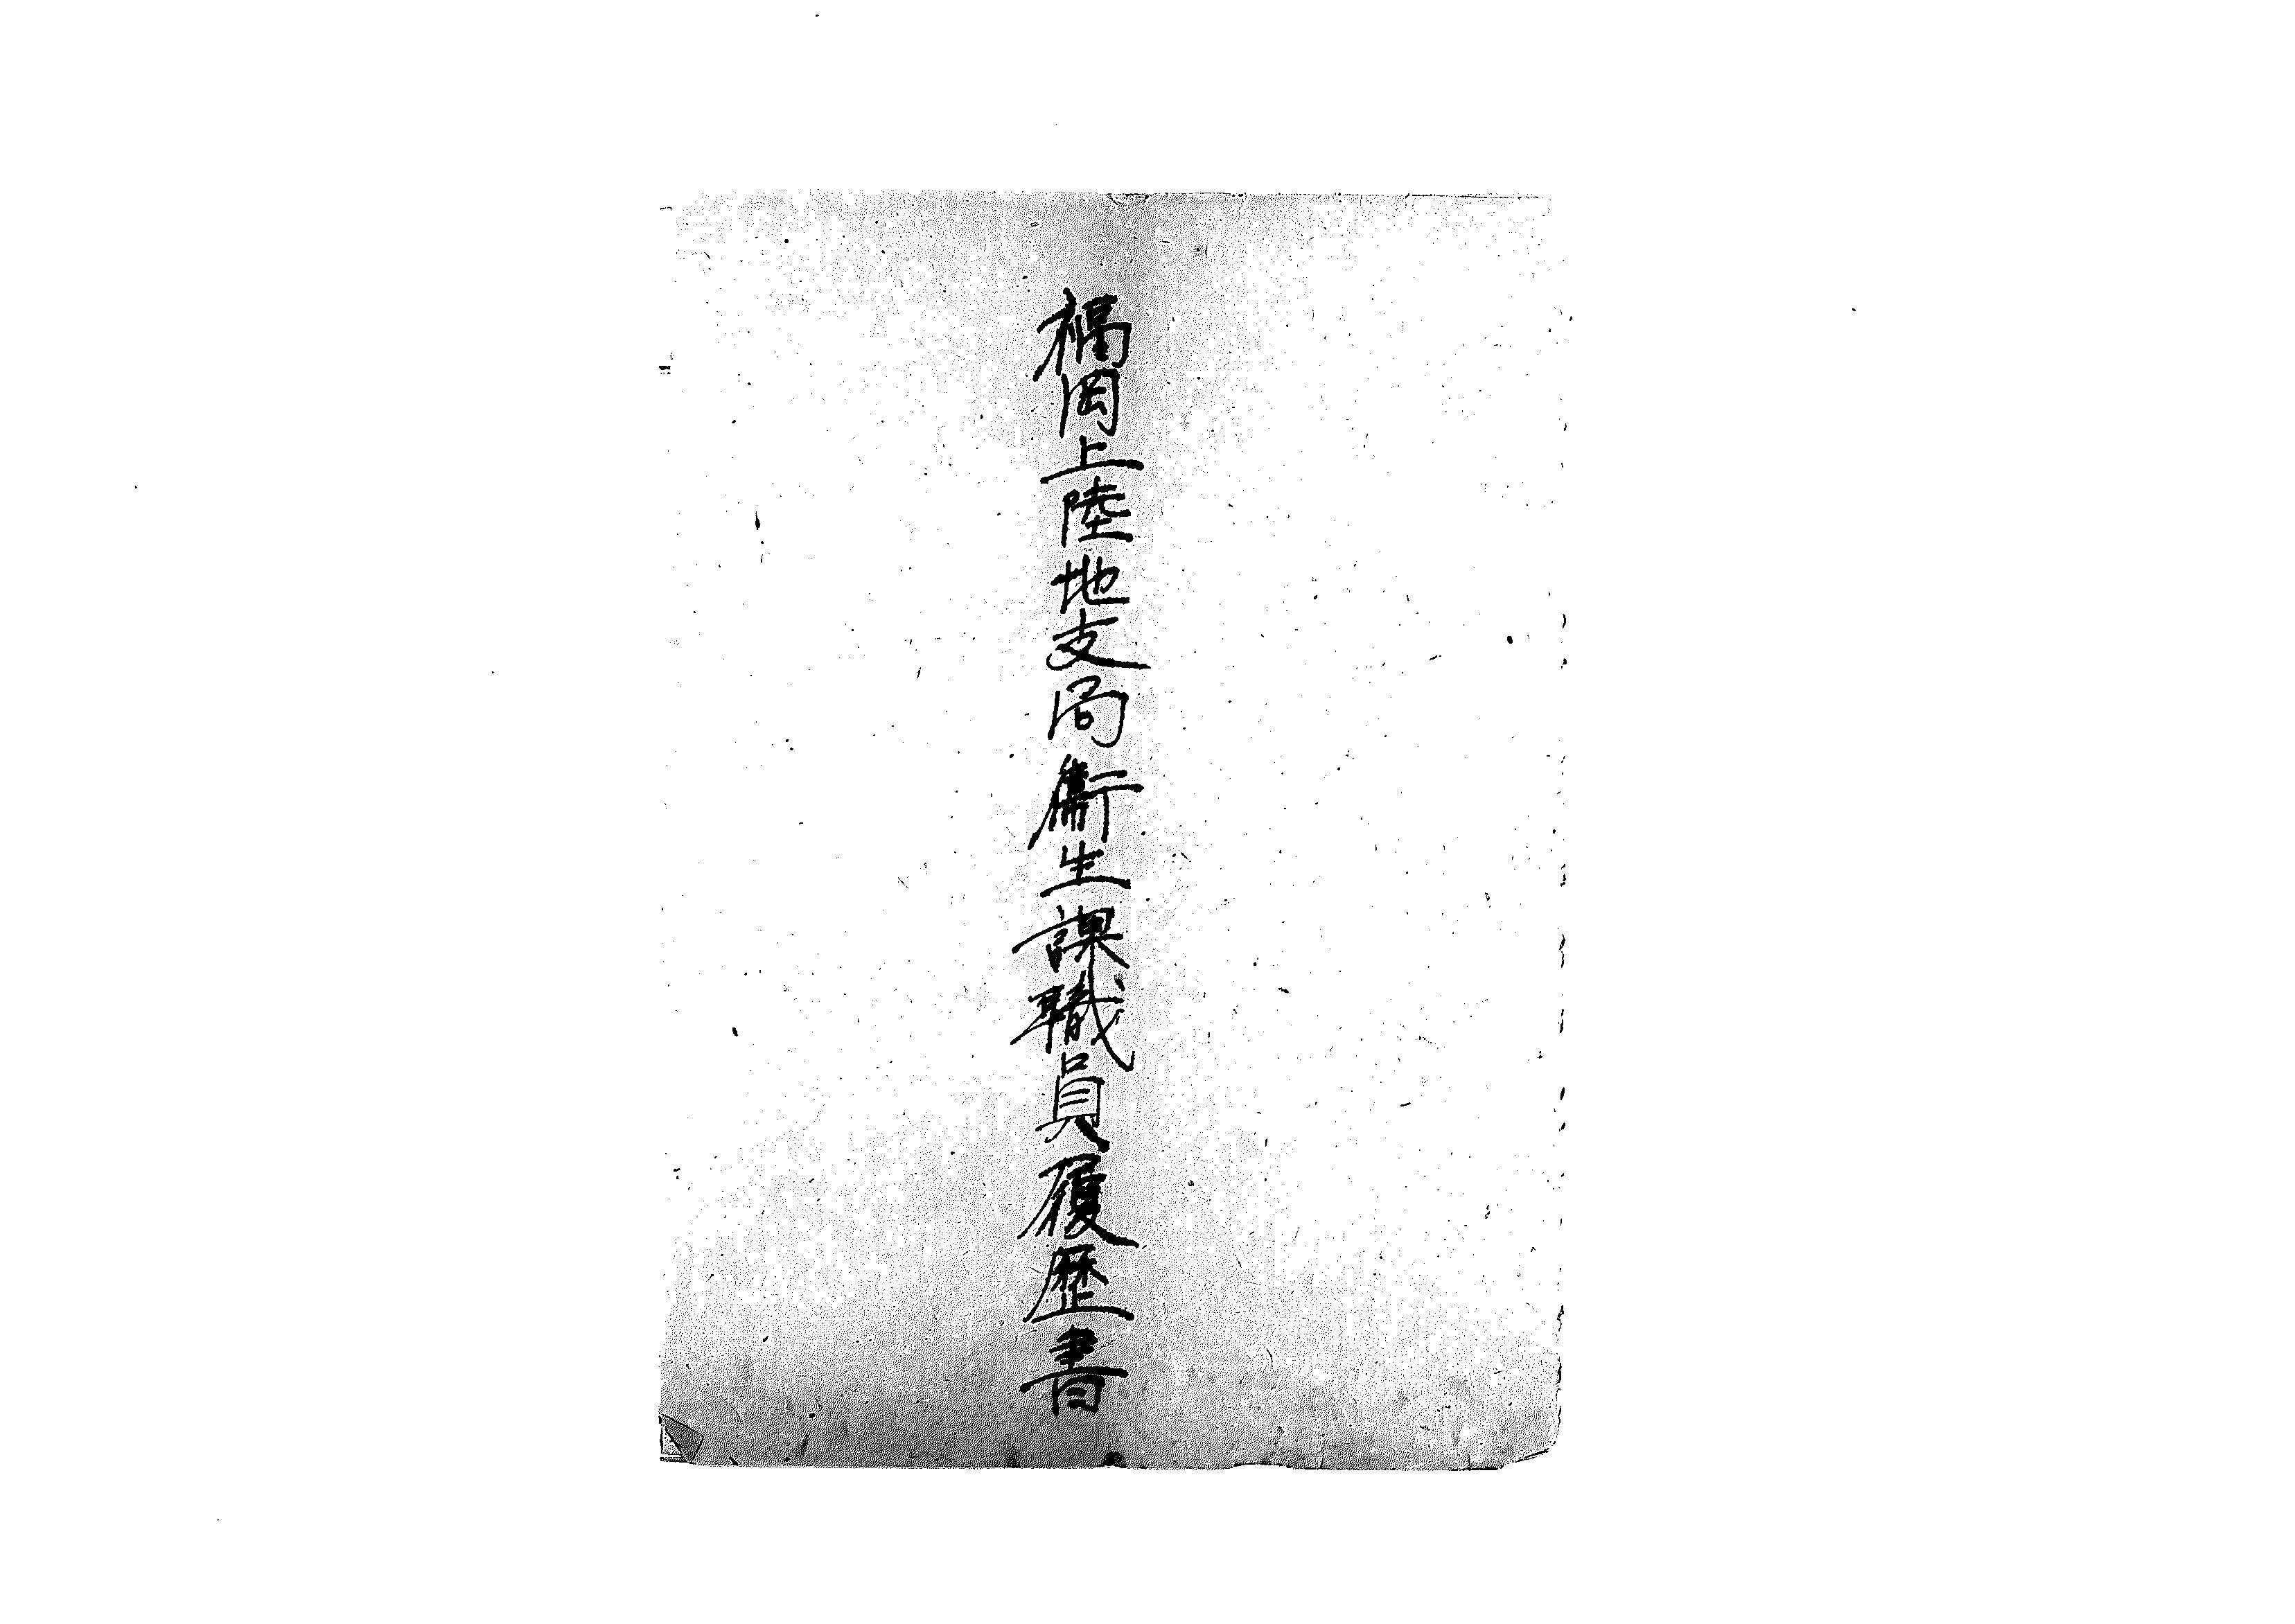 福岡上陸地支局衛生課職員履歴書